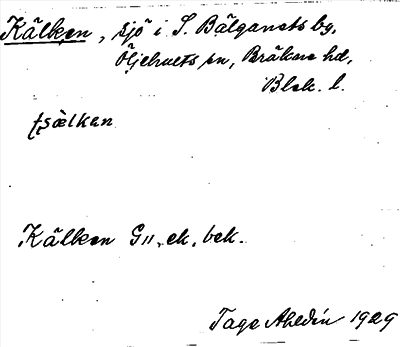 Kälken, sjö i S. Bälganets by,
Öljehults sn, Bräkne hd,
Blek. l.
tsälkan
Kälken G11, ek. bek.
Tage Ahldén 1929